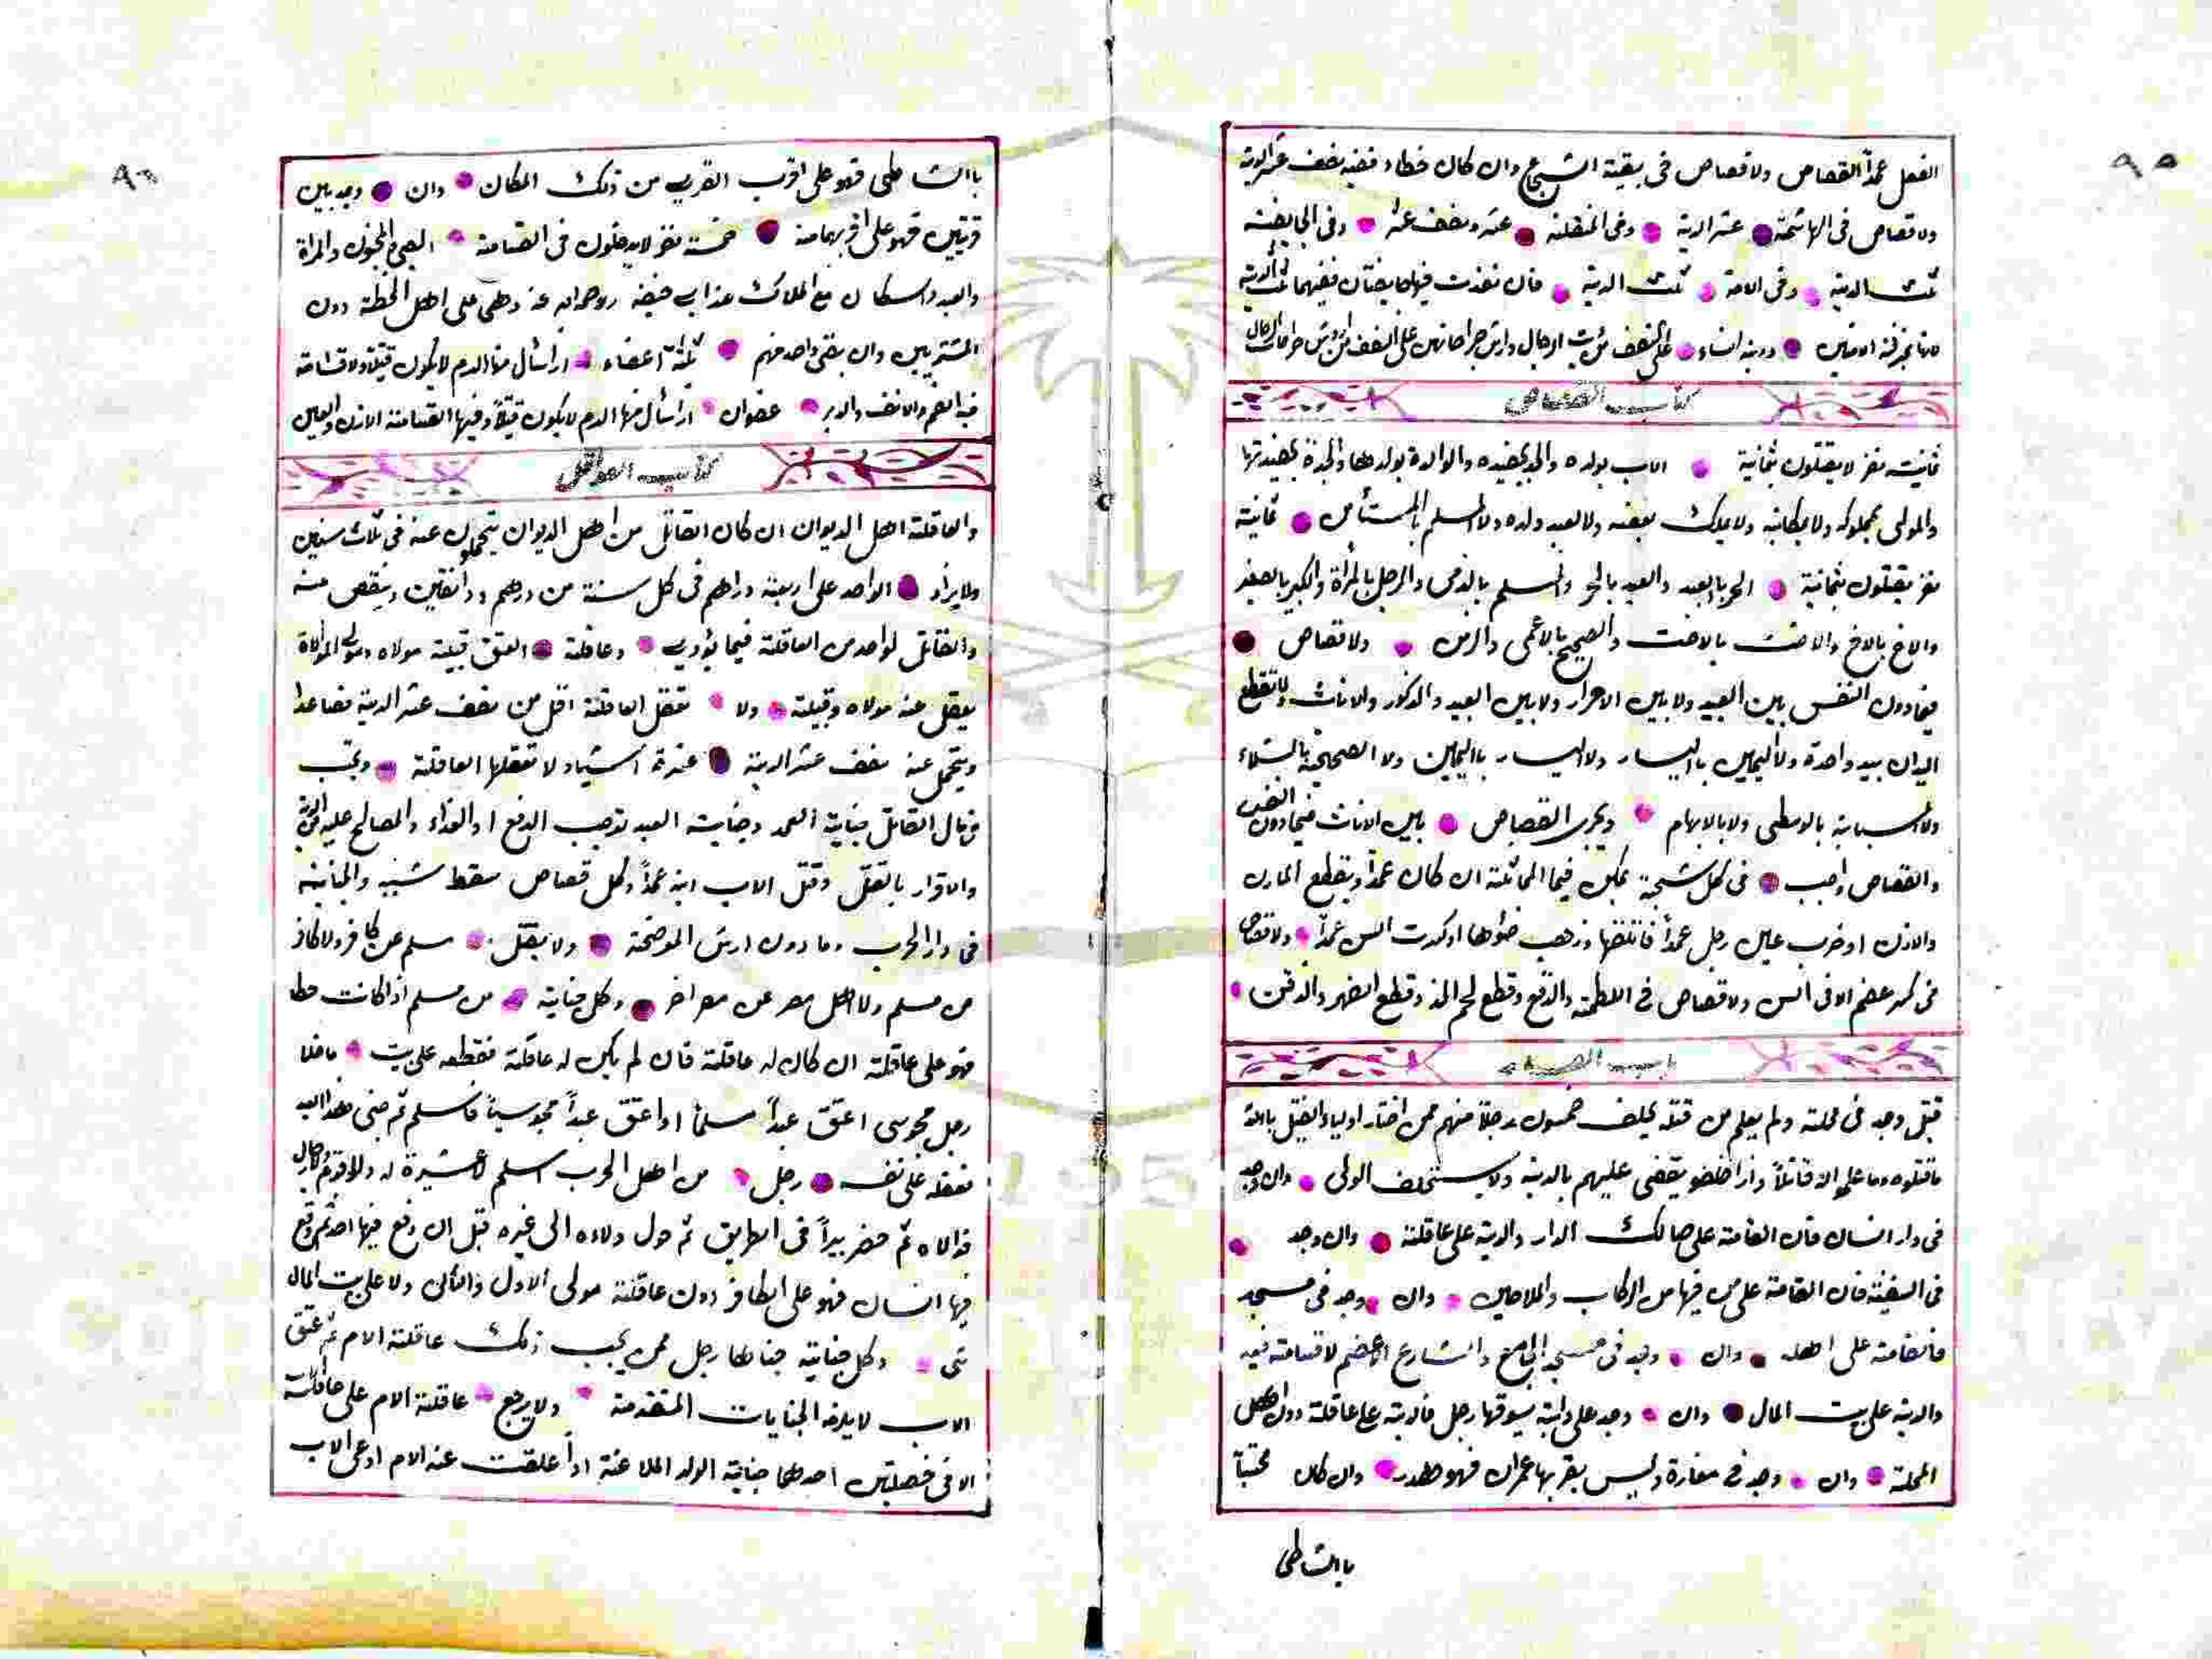 ٩٥
الفعل عمداً القصاص ولا قصاص فى بقية الشجاج وان كان خطاء ففيه نصف عشر الدية
ولا قصاص فى الهاشمة عشر الدية وفى المنقلة عشر ونصف عشر وفى الجايفة
ثلث الدية وفى الامة ثلث الدية فان نفذت فهما جايفتان ففيهما ثلثا الدية
ودية النساء على النصف من دية الرجال وارش جراحاتهن على النصف من ارش جراحات الرجال
كتاب القصاص
ثمانية نفر لا يقتلون بثمانية الاب بولده والجد بحفيده والوالدة بولدها والجدة بحفيدتها
والمولى بمملوكه ولا بمكاتبه ولا بملك بعضه ولا لعبد ولده ولا المسلم بالمستأمن ثمانية
نفر يقتلون بثمانية الحر بالعبد والعبد بالحر والمسلم بالذمى والرجل بالمرأة والكبير بالصغير
والاخ بالاخ والاخت بالاخت والصحيح بالاعمى والزمن ولا قصاص
فيما دون النفس بين العبيد ولا بين الاحرار ولا بين العبيد والذكور والاناث ولا تقطع
اليدان بيد واحدة ولا اليمين باليسار ولا اليسار باليمين ولا الصحيحة بالشلاء
ولا السبابة بالوسطى ولا بالابهام ويجرى القصاص بين الاناث فيما دون النفس
والقصاص واجب فى كل شجة يمكن فيها المماثلة ان كان عمداً ويقطع المارن
والاذن او ضرب عين رجل عمداً فانلفها وذهب ضوءها او كسرت السن عمداً ولا قصاص
فى كسر عضم الا فى السن ولا قصاص فى اللطمة والدفع وقطع لحم الخد وقطع الضهر والذقن
باب
قتيل وجد فى محلة ولم يعلم من قتله يحلف خمسون رجلا منهم ممن اختار اولياء القتيل بالله
ما قتلوه وما علموا له قاتلاً واذا حلفو يقضى عليهم بالدية ولا يستحلف الولى وان وجد
فى دار انسان فان القسامة على صاحب الدار والدية على عاقلته وان وجد
فى السفينة فان القسامة على من فيها من الركاب والملاحين وان وجد فى مسجد
فالقسامة على اهله وان وجد فى مسجد الجامع والشارع الاعضم لا قسامة فيه
والدية على بيت المال وان وجد على دابة يسوقها رجل فالدية على عاقلته دون اهل
المحلة وان وجد فى مفازة وليس بقربها عمران فهو هدر وان كان محتبساً
باالشاطى
٩٦
باالشاطى فهو على اقرب القرى من ذلك المكان وان وجد بين
قريتين فهو على اقربهما منه خمسة نفر لا يدخلون فى القسامة الصبى والمجنون والمراة
والعبد والسكان مع الملاك عند ابى حنيفة رحمه الله عنه وهى على اهل الخطة دون
المشتريين وان بقى واحد منهم ثلثة اعضاء اذا سأل منها الدم لا يكون قتيلا ولا قسامة
فيه الفم والانف والدبر عضوان اذا سأل منها الدم لا يكون قتيلاً وفيها القسامة الاذن والعين
كتاب العواقل
والعاقلة اهل الديوان ان كان القاتل من اهل الديوان يتحملون عنه فى ثلاث سنين
ولا يزاد الواحد على اربعة دراهم فى كل سنة من درهم ودانقين وينقص منه
والقاتل كواحد من العاقلة فيما يؤدى وعاقلة العتق قبيلة مولاه ومولى الموالاة
يعقل عنه مولاه وقبيلته ولا تعقل العاقلة اقل من نصف عشر الدية فصاعدا
ويتحمل عنه نصف عشر الدية عشرة اشياء لا تعقلها العاقلة وتجب
فى مال القاتل جناية العمد وجناية العبد توجب الدفع او الفداء والمصالح عليه
والاقرار بالقتل وقتل الاب ابنه عمداً وكل قصاص سقط شبهه والجناية
فى دار الحرب وما دون ارش الموضحة ولا يعقل مسلم عن كافر ولا كافر
من مسلم ولا اهل مصر عن مصر اخر وكل جناية من مسلم اذا كانت خطا
فهو على عاقلته ان كان له عاقلة فان لم يكن له عاقلة فعقله على بيت ما خلا
رجل مجوسى اعتق عبداً مسلماً او اعتق عبداً مجوسياً فاسلم ثم جنى هذا العبد
فعقله على نفسه رجل من اهل الحرب اسلم لا عشيرة له ولا قوم
فوالاه ثم حفر بيراً فى الطريق ثم حول ولاءه الى غيره قبل ان وقع فيها احد ثم وقع
فيها انسان فهو على الحافر دون عاقلة مولى الاول والثانى ولا على بيت المال
شى وكل جناية جناها رجل ممن يجب ذلك عاقلة الام ثم عتق
الاب لا يلزمه الجنايات المتقدمة ولا يرجع عاقلة الام على عاقلته
الا فى خصلتين احدهما جناية الولد الملاعنة اذا علقت عنه الام ادعى الاب